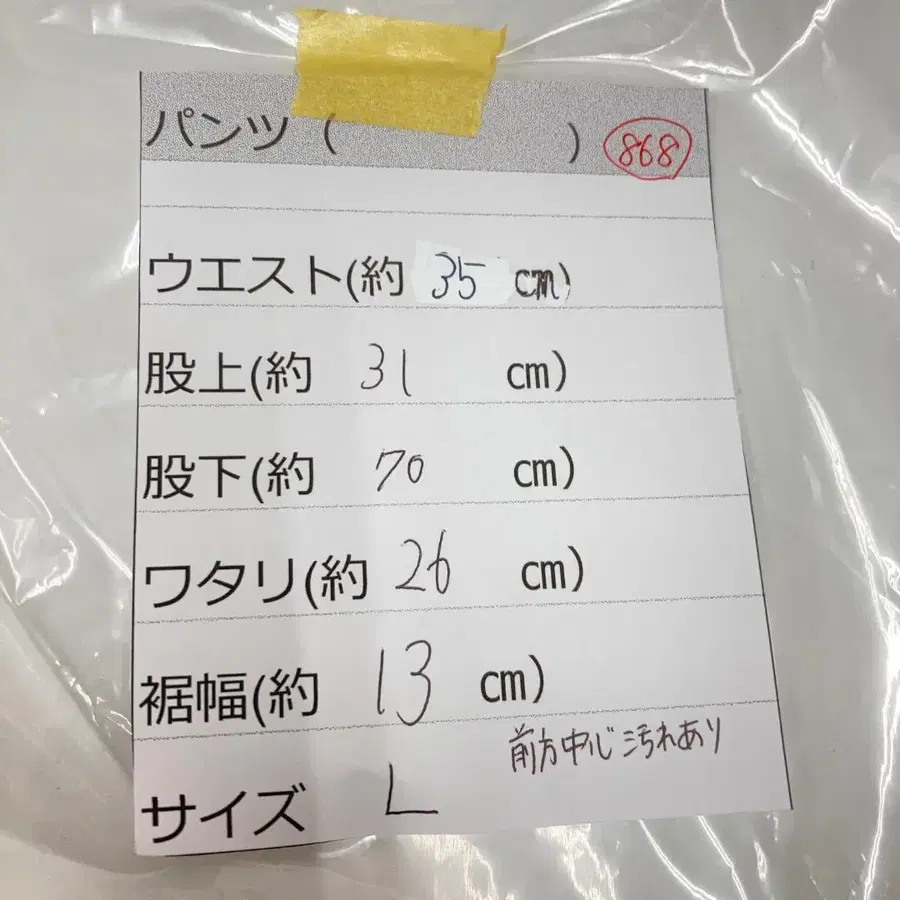 パンツ ( ) 868
ウエスト(約 35 cm)
股上(約 31 cm)
股下(約 70 cm)
ワタリ(約 26 cm)
裾幅(約 13 cm)
前方中心汚れあり
サイズ L